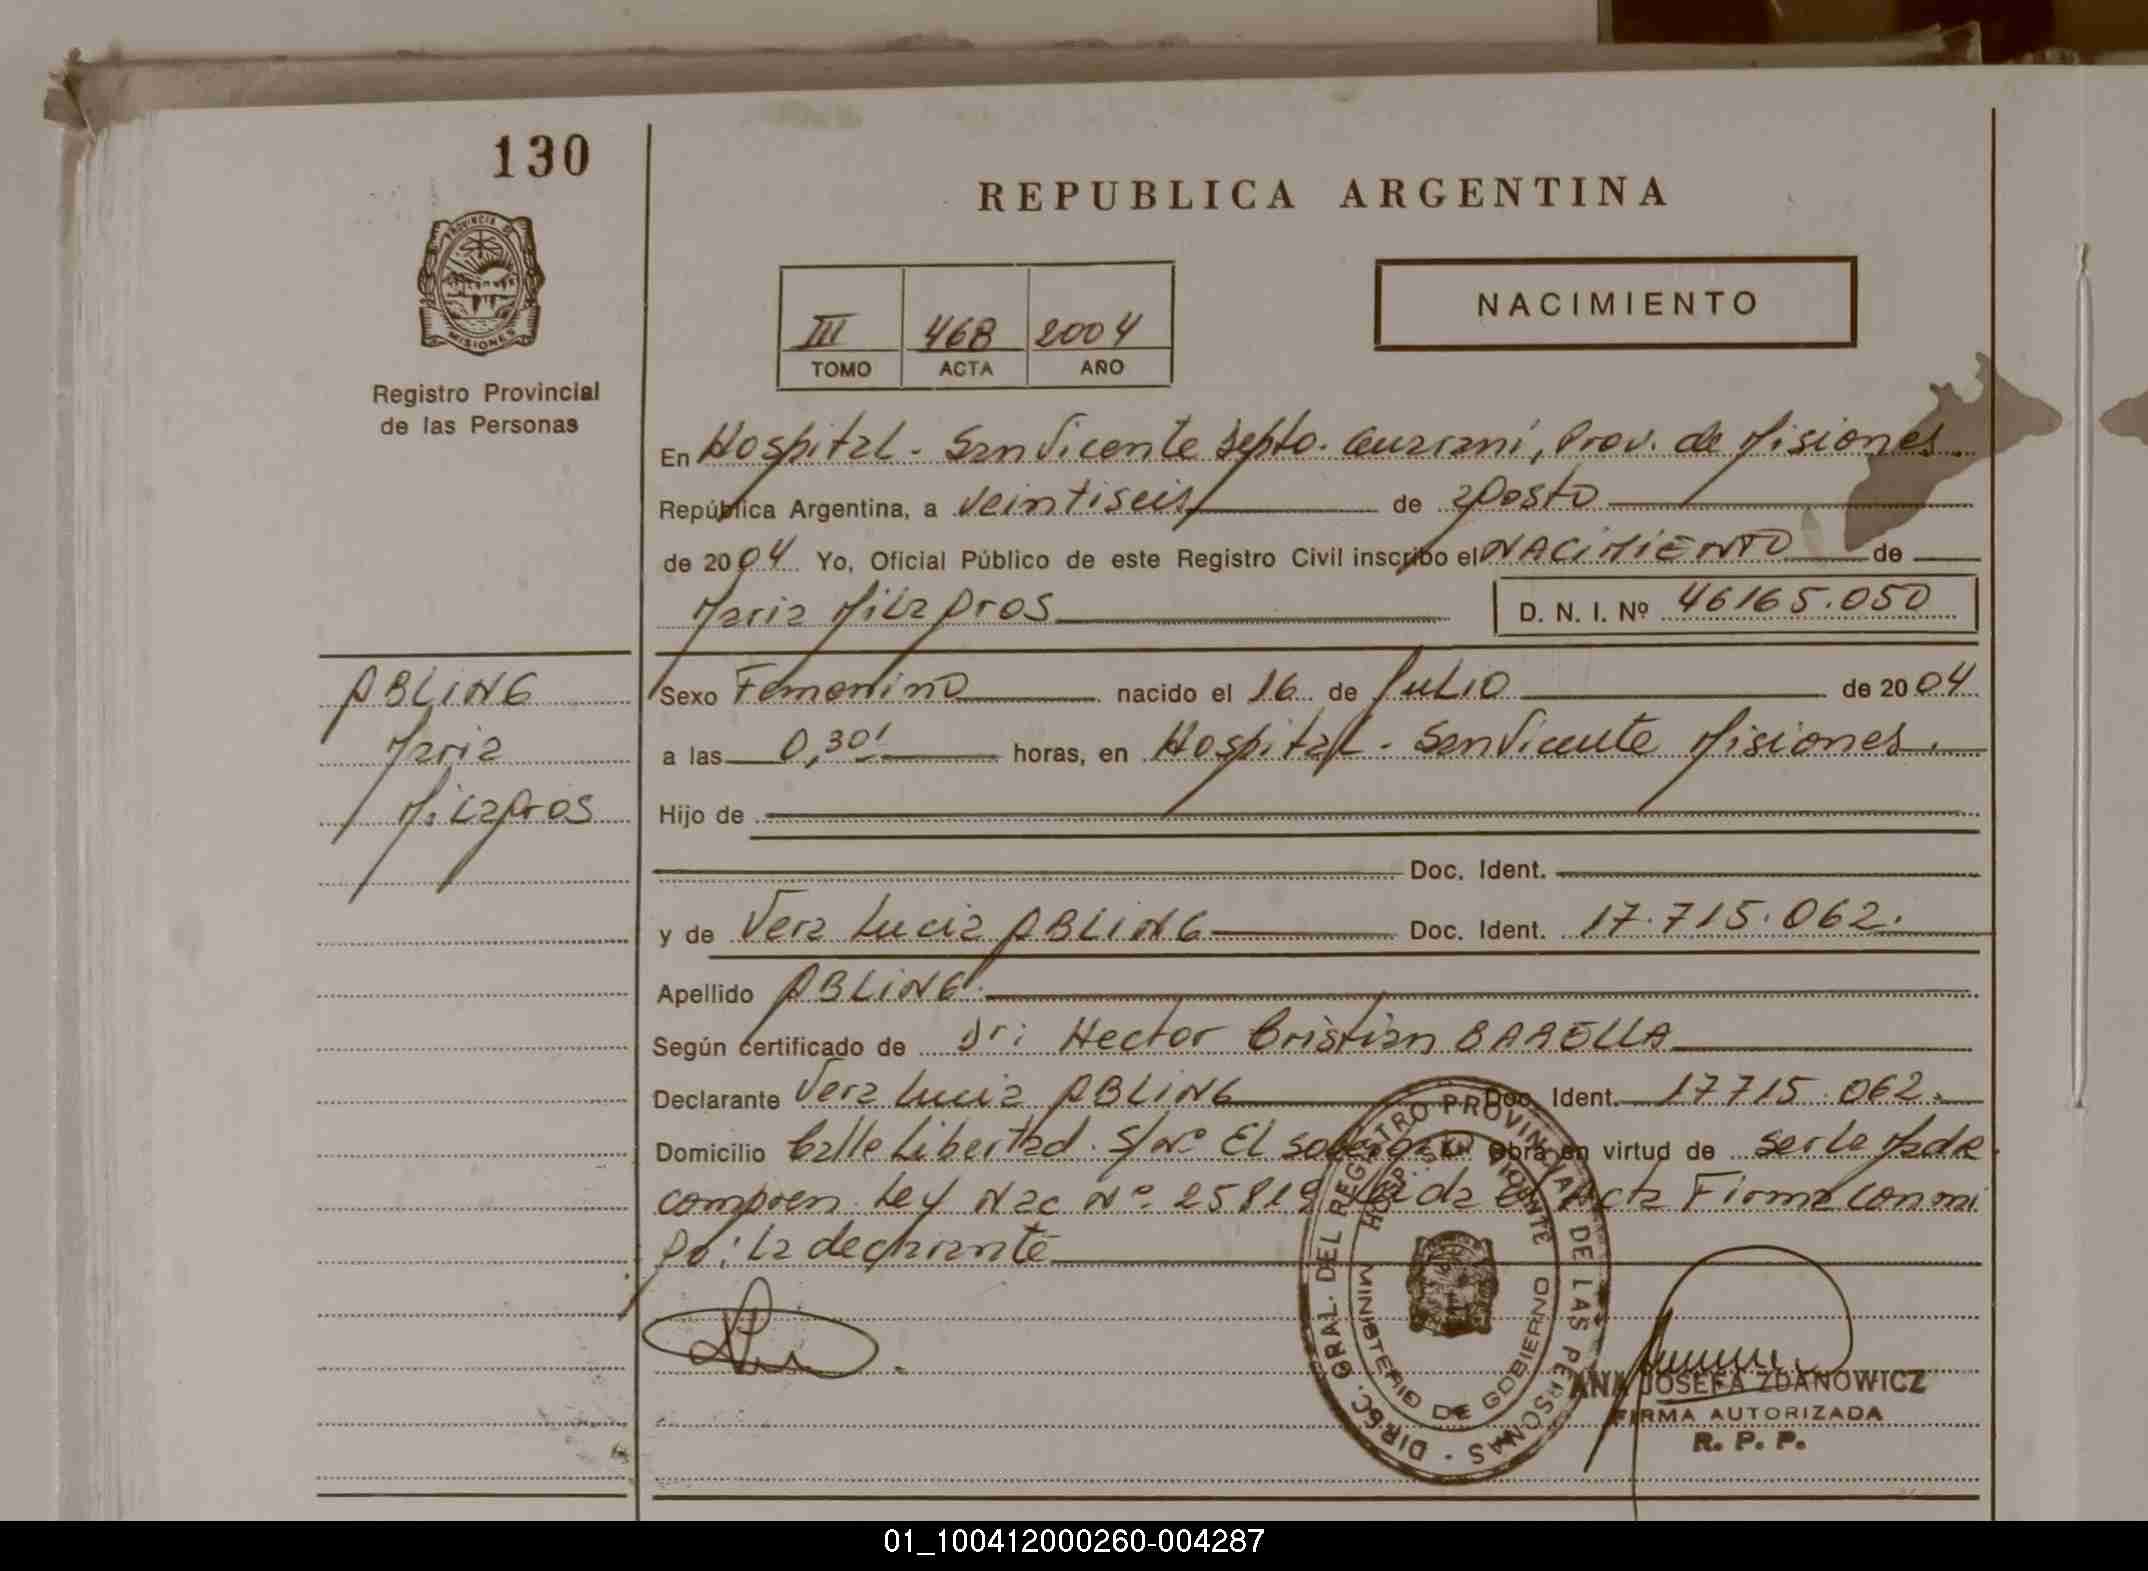 130
REPUBLICA ARGENTINA
PROVINCIA DE
MISIONES
NACIMIENTO
III 468 2004
TOMO ACTA AÑO
Registro Provincial
de las Personas
En Hospital - San Vicente Depto. Guarani, Prov. de Misiones
República Argentina, a veintiseis de agosto
de 2004 Yo, Oficial Público de este Registro Civil inscribo el NACIMIENTO de
Maria Milagros D. N. I. Nº 46165.050
ABLING
Maria
Milagros
Sexo Femenino nacido el 16 de Julio de 2004
a las 0,30' horas, en Hospital - San Vicente Misiones.
Hijo de
Doc. Ident.
y de Vera Lucia ABLING Doc. Ident. 17.715.062.
Apellido ABLING.
Según certificado de Dr: Hector Cristian BARELLA
Declarante Vera Lucia ABLING Doc. Ident. 17715.062.
Domicilio Calle Libertad S/Nº El Obra en virtud de ser la Madre
compren Ley Nac Nº 25819 Leida el Acta Firma con mi
go: la declarante
DIREC. GRAL. DEL REGISTRO PROVINCIAL DE LAS PERSONAS
HOSP. SAN VICENTE
MINISTERIO DE GOBIERNO
ANA JOSEFA ZDANOWICZ
FIRMA AUTORIZADA
R. P. P.
01_100412000260-004287